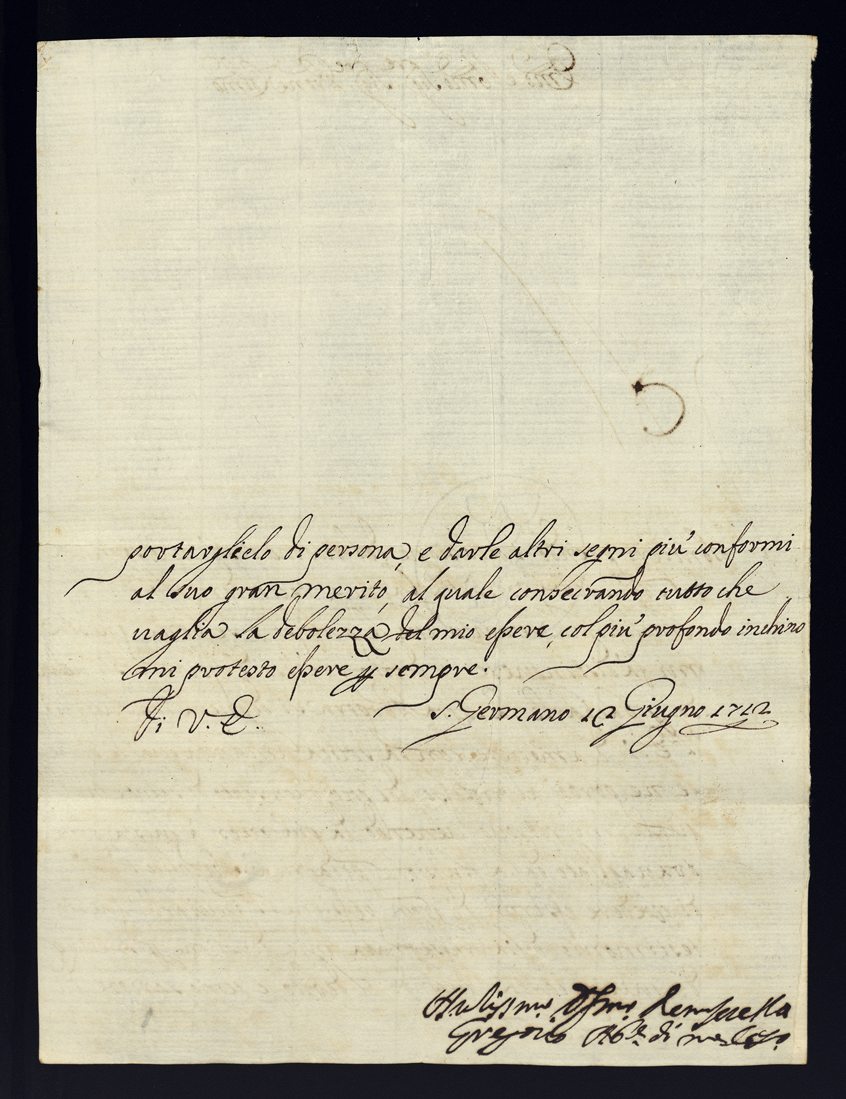 portarglielo di persona, e darle altri segni più conformi
al suo gran merito, al quale consecrando tutto che
uaglia la debolezza del mio essere, col più profondo inchino
mi protesto essere p sempre.
Di V. E. S. Germano 12 Giugno 1712
Gregorio Ab.e di